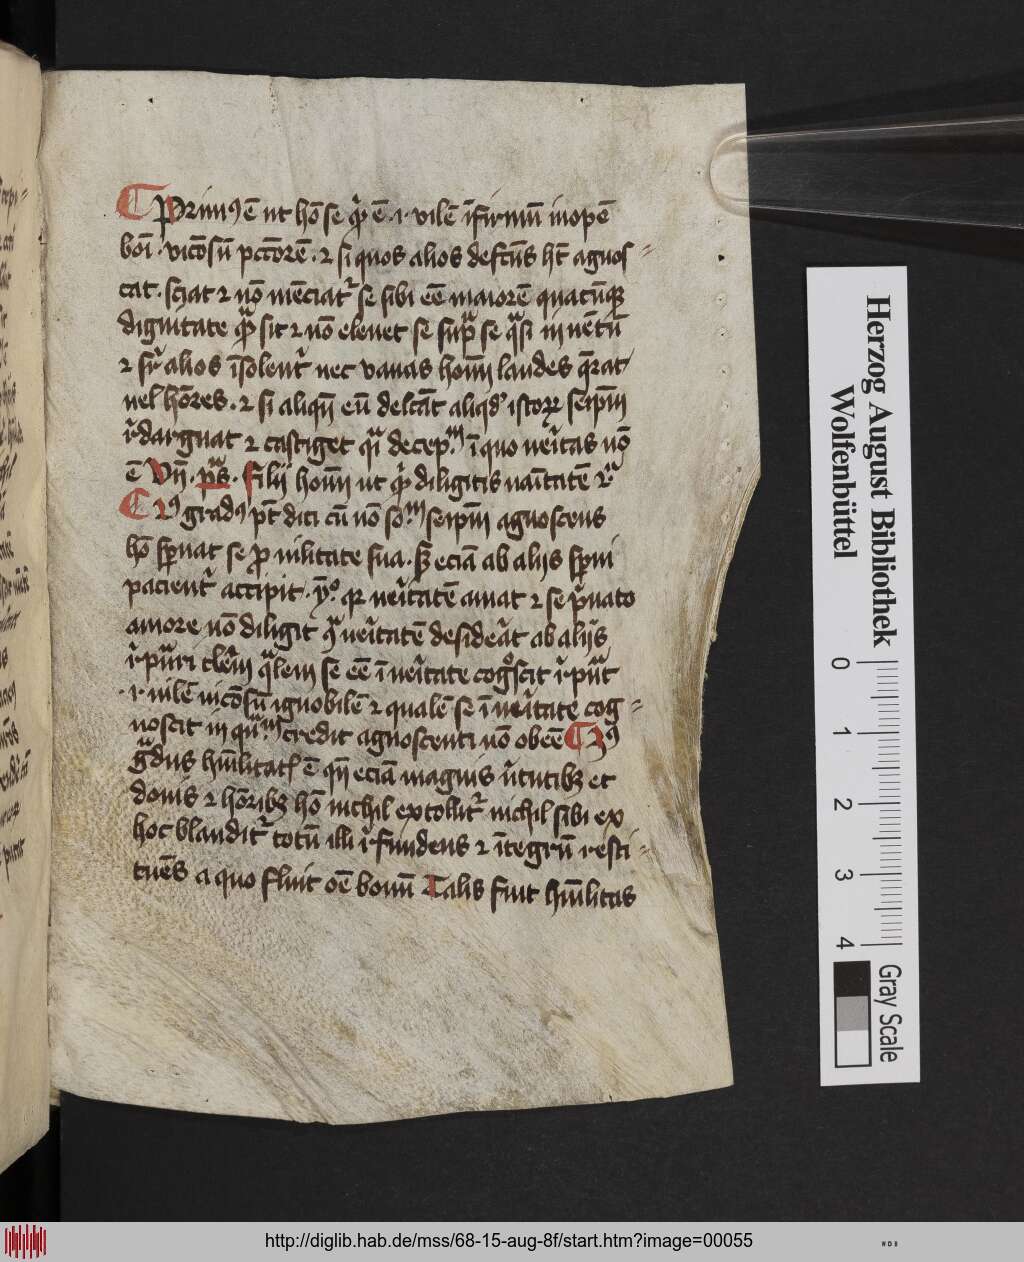 Primꝰ ē ut hō se qͥ ē · i · vilē īfirmū inopē
boī · vicōsū pctōrē · ⁊ si quos alios defctūs hꝫ agnos⸗
cat · sciat ⁊ nō mēciatᷣ se sibi eē maiorē quacūqꝫ
dignitate sit ⁊ nō elevet se supͣ se qͣsi in vētū
⁊ alios īsolentᷣ nec vanas homī laudes q̄rat
vel hōres · ⁊ si aliqn̄ eū delcāt aliqͥd istoꝝ seipm̄
arguat ⁊ castiget qͥ decep ī quo veͥtas nō
ē Vn̄ · pͣs · filii homī ut qͥ diligitis vaītatē ⁊ͬ
2ꝰ gradꝰ pt̄ dici cū nō soᷓ seipm̄ agnoscens
hō spͤnat se ꝓ vilitate sua · sꝫ eciā ab aliis spͤni
pacientᷣ accipit · qꝛ veͥtatē amat ⁊ se pͥvato
amore nō diligit qͣ veͥtatē desideͣt ab aliis
qͣlem se eē ī veͥtate cogͦscit
· i · vilē vicōsū ignobilē ⁊ qualē se ī veͥtate cog⸗
noscit in credit agnoscenti nō obeē 3ꝰ
gͣdus hūilitatꝭ ē qn̄ eciā magnis vͥtutibꝫ et
donis ⁊ hōribꝫ hō nichil extollitᷣ nichil sibi ex
hoc blanditᷣ totū illi rͤfundens ⁊ ītegrū resti⸗
tuēs a quo fluit oē bonū Talis fuit hūilitas
Herzog August Bibliothek
Wolfenbüttel
0 1 2 3 4
Gray Scale
http://diglib.hab.de/mss/68-15-aug-8f/start.htm?image=00055